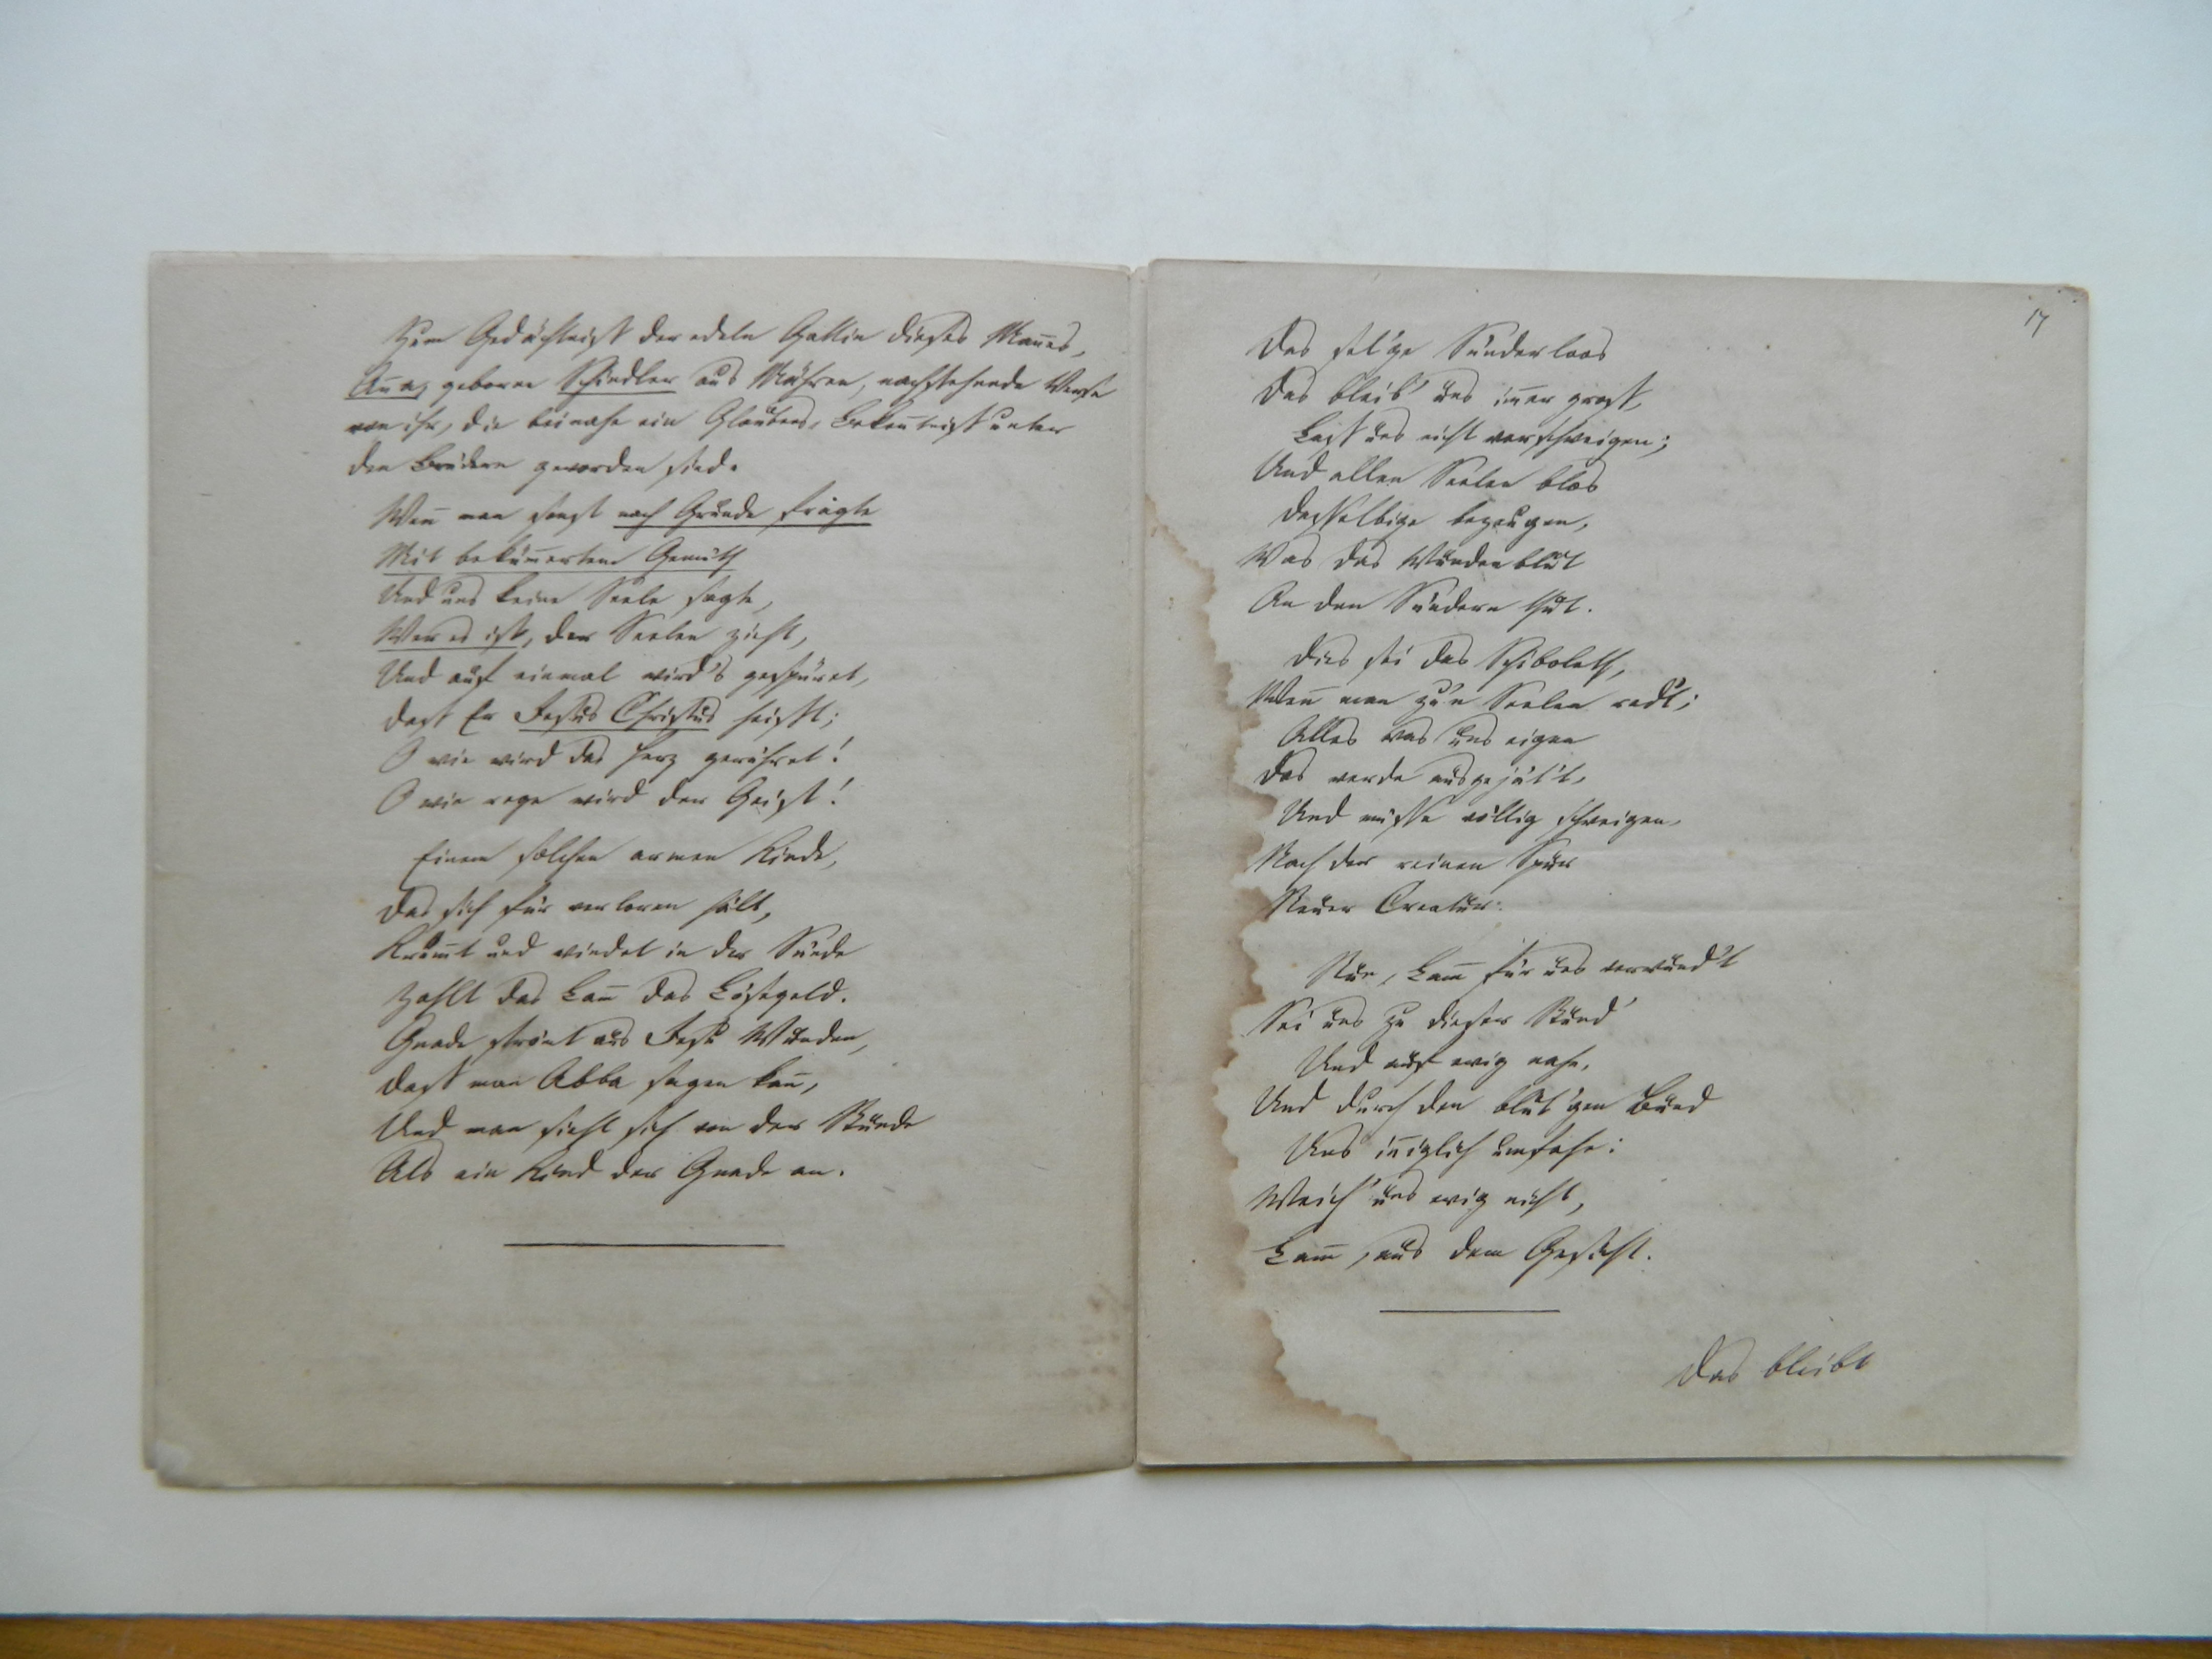 Zum Gedächtniß der edeln Gattin dieses Man̄es,
An̄a, geborne Schindler aus Mähren, nachstehende Verse
von ihr, die beinahe ein Glaubens-Beken̄tniß unter
den Brüdern geworden sind.
Wen̄ man sonst nach Gnade fragte
Mit beküm̄ertem Gemüth
Und uns keine Seele sagte,
Wer es ist, der Seelen zieht,
Und auf einmal wird's gespüret,
daß Er Jesus Christus heißt;
O wie wird das Herz gerühret!
O wie rege wird der Geist!
Einem solchen armen Kinde,
Das sich für verloren hält,
Krüm̄t und windet in der Sünde
Zahlt das Lam̄ das Lösegeld.
Gnade strömt aus Jesu Wunden,
daß man Abba sagen kan̄,
Und man sieht sich von der Stunde
Als ein Kind der Gnade an.
17
Das sel'ge Sünderloos
Das bleib' uns im̄er groß,
Laßt uns nicht verschweigen;
Und allen Seelen blos
dasselbige bezeugen,
Was das Wundenblut
An den Sündern thut.
Dies sei das Schiboleth,
Wen̄ man zu'n Seelen red't;
Alles was uns eigen
das werde ausgejät't,
Und müsse völlig schweigen,
Nach der reinen Spur
Neuer Creatur.
Nun, Lam̄ für uns verwund't
Sei uns zu dieser Stund'
Und auf ewig nahe,
Und durch den blut'gen Bund
Uns in̄iglich umfahe:
Weich' uns ewig nicht,
Lam̄, aus dem Gesicht.
Das bleibt